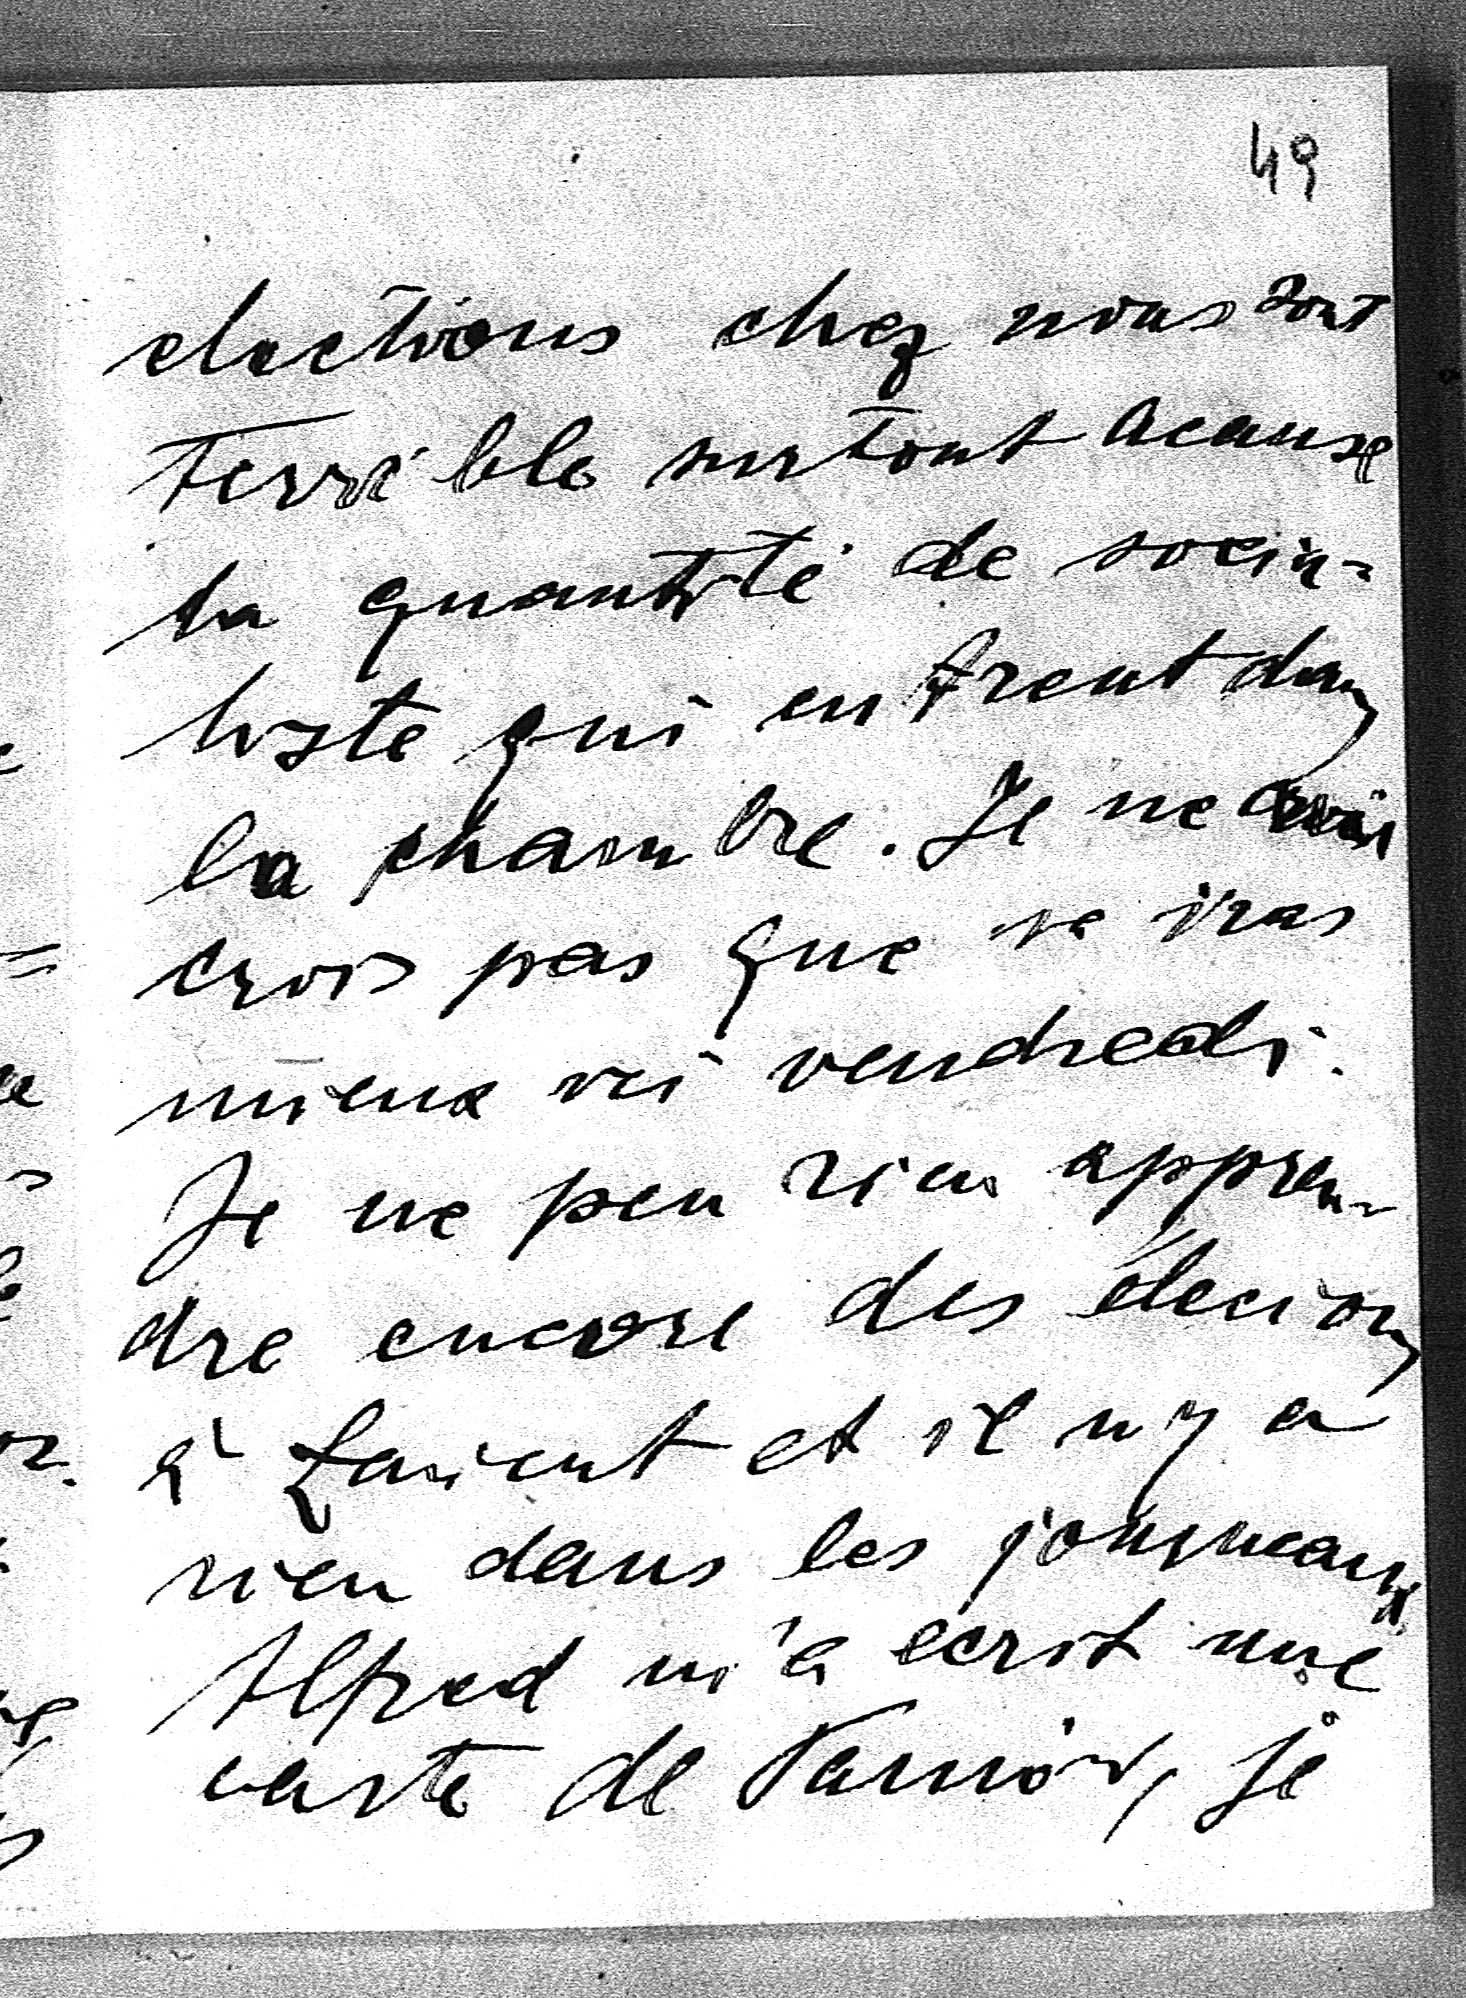 49
elections chez nous sont
terrible surtout acause
la quantité de socia-
liste qui entrent dans
la chambre. Je ne
crois pas que se iras
mieux ici vendredi.
Je ne peu rien appren-
dre encore des élecions
à et il n y a
rien dans les journeaux
Alfred m'a ecrit une
carte de je